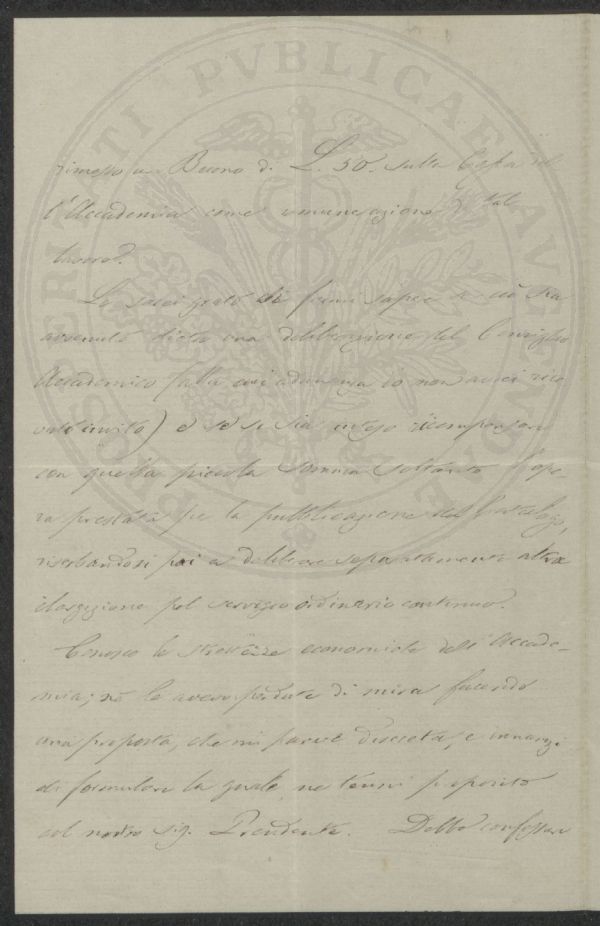 rimesso un Buono di L. 50. sulla Cassa del
l'Accademia come remunerazione di tal
lavoro?
Le sarei grato di farmi sapere se ciò sia
avvenuto dietro una deliberazione del Consiglio
Accademico (alla cui adunanza io non avrei rice
vuto invito) e se si sia inteso ricompensare
con quella piccola somma soltanto l'ope
ra prestata per la pubblicazione del Catalogo,
riserbandosi poi a deliberare separatamente altra
elargizione pel servizio ordinario continuo.
Conosco le strettezze economiche dell'Accade-
mia; nè le avevo perdute di mira facendo
una proposta, che mi parve discreta, e innanzi
di formulare la quale, ne tenni proposito
col nostro sig. Presidente. Debbo confessare